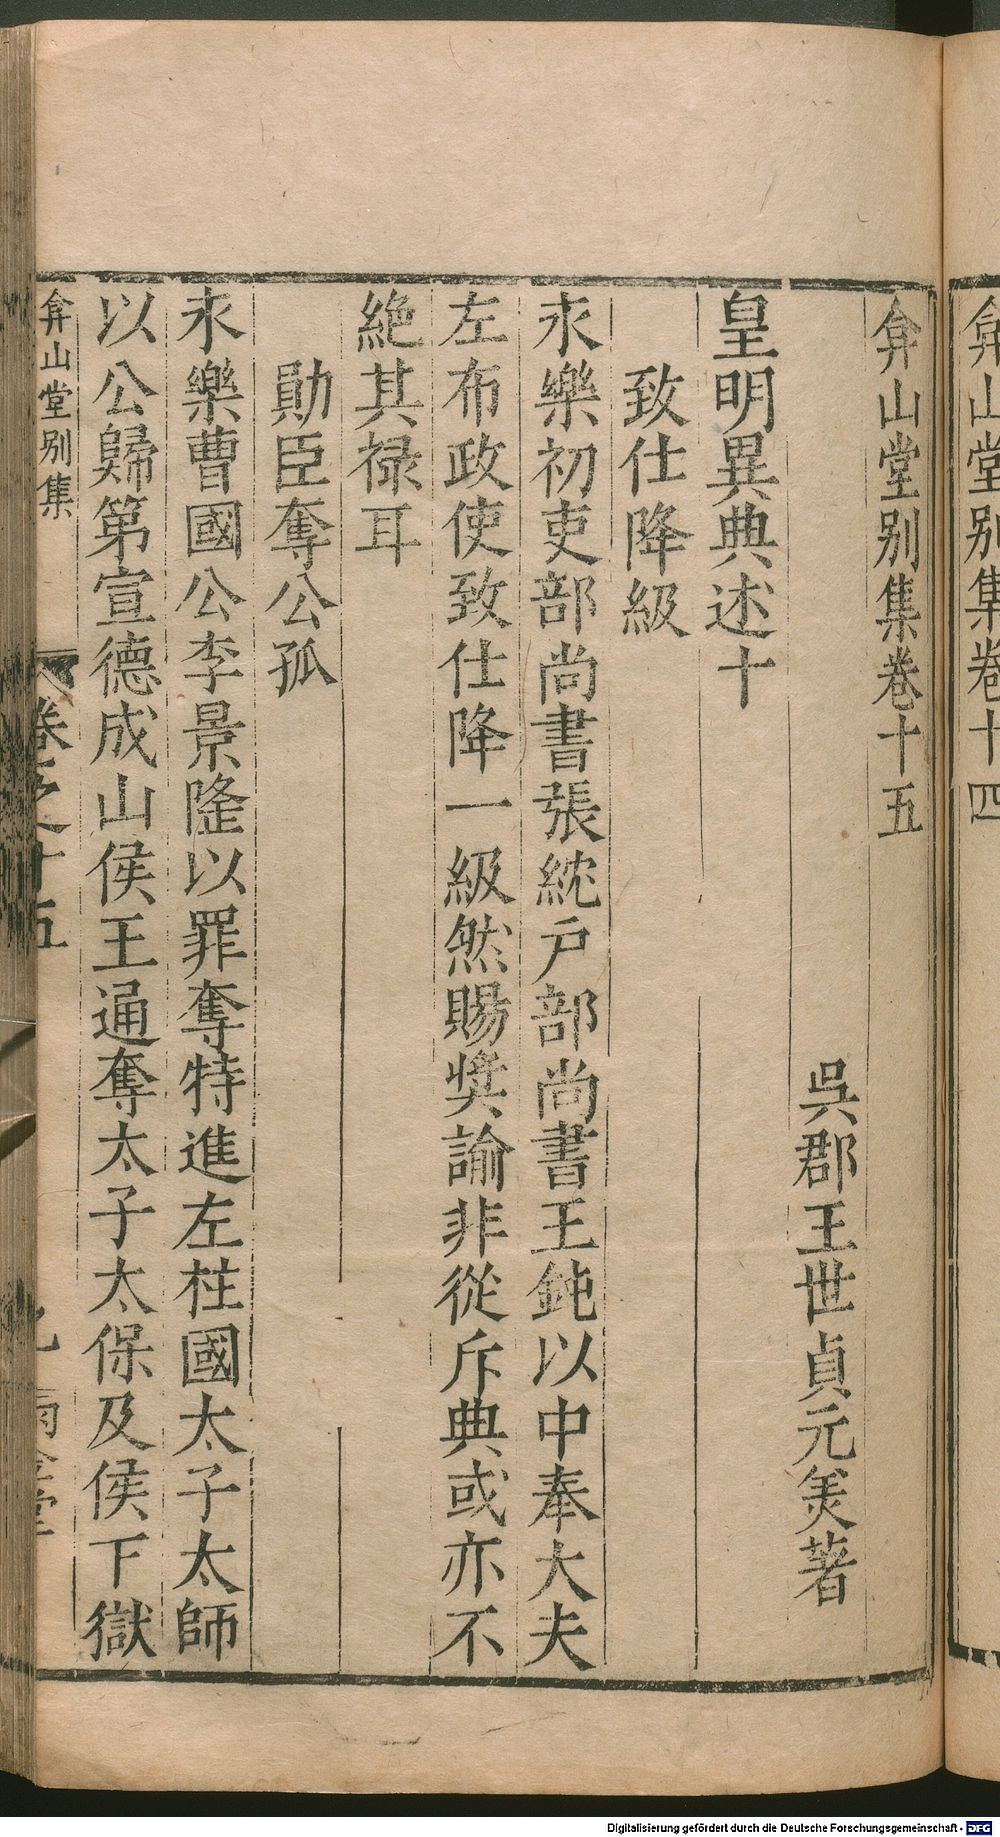 弇山堂別集卷十四
弇山堂別集卷十五
吳郡王世貞元美著
皇明異典述十
致仕降級
永樂初吏部尚書張紞戶部尚書王鈍以中奉大夫
左布政使致仕降一級然賜奬諭非從斥典或亦不
絶其禄耳
勛臣奪公孤
永樂曹國公李景隆以罪奪特進左柱國太子太師
以公歸第宣德成山侯王通奪太子太保及侯下獄
弇山堂別集
卷之十五
Digitalisierung gefördert durch die Deutsche Forschungsgemeinschaft - DFG